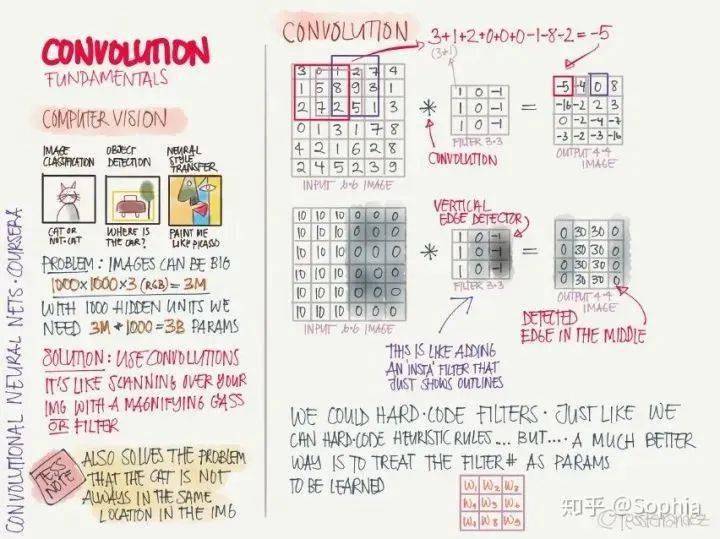 CONVOLUTIONAL NEURAL NETS · COURSERA
CONVOLUTION
FUNDAMENTALS
COMPUTER VISION
IMAGE CLASSIFICATION
OBJECT DETECTION
NEURAL STYLE TRANSFER
CAT OR NOT-CAT
WHERE IS THE CAR?
PAINT ME LIKE PICASSO
PROBLEM: IMAGES CAN BE BIG
1000×1000×3 (RGB) = 3M
WITH 1000 HIDDEN UNITS WE
NEED 3M * 1000 = 3B PARAMS
SOLUTION: USE CONVOLUTIONS
IT'S LIKE SCANNING OVER YOUR
IMG WITH A MAGNIFYING GASS
OR FILTER
TESS NOTE
ALSO SOLVES THE PROBLEM
THAT THE CAT IS NOT
ALWAYS IN THE SAME
LOCATION IN THE IMG
CONVOLUTION
3+1+2+0+0+0-1-8-2=-5
(3*1)
3 0 1 2 7 4
1 5 8 9 3 1
2 7 2 5 1 3
0 1 3 1 7 8
4 2 1 6 2 8
2 4 5 2 3 9
INPUT 6·6 IMAGE
*
CONVOLUTION
1 0 -1
1 0 -1
1 0 -1
FILTER 3·3
=
-5 -4 0 8
-16 -2 2 3
0 -2 -4 -7
-3 -2 -3 -16
OUTPUT 4·4
IMAGE
10 10 10 0 0 0
10 10 10 0 0 0
10 10 10 0 0 0
10 10 10 0 0 0
10 10 10 0 0 0
10 10 10 0 0 0
INPUT 6·6 IMAGE
*
VERTICAL
EDGE DETECTOR
1 0 -1
1 0 -1
1 0 -1
FILTER 3·3
=
0 30 30 0
0 30 30 0
0 30 30 0
0 30 30 0
OUTPUT 4·4
IMAGE
DETECTED
EDGE IN THE MIDDLE
THIS IS LIKE ADDING
AN 'INSTA' FILTER THAT
JUST SHOWS OUTLINES
WE COULD HARD-CODE FILTERS · JUST LIKE WE
CAN HARD-CODE HEURISTIC RULES... BUT.... A MUCH BETTER
WAY IS TO TREAT THE FILTER # AS PARAMS
TO BE LEARNED
W1 W2 W3
W4 W5 W6
W7 W8 W9
知乎 @Sophia
@TessFerrandez